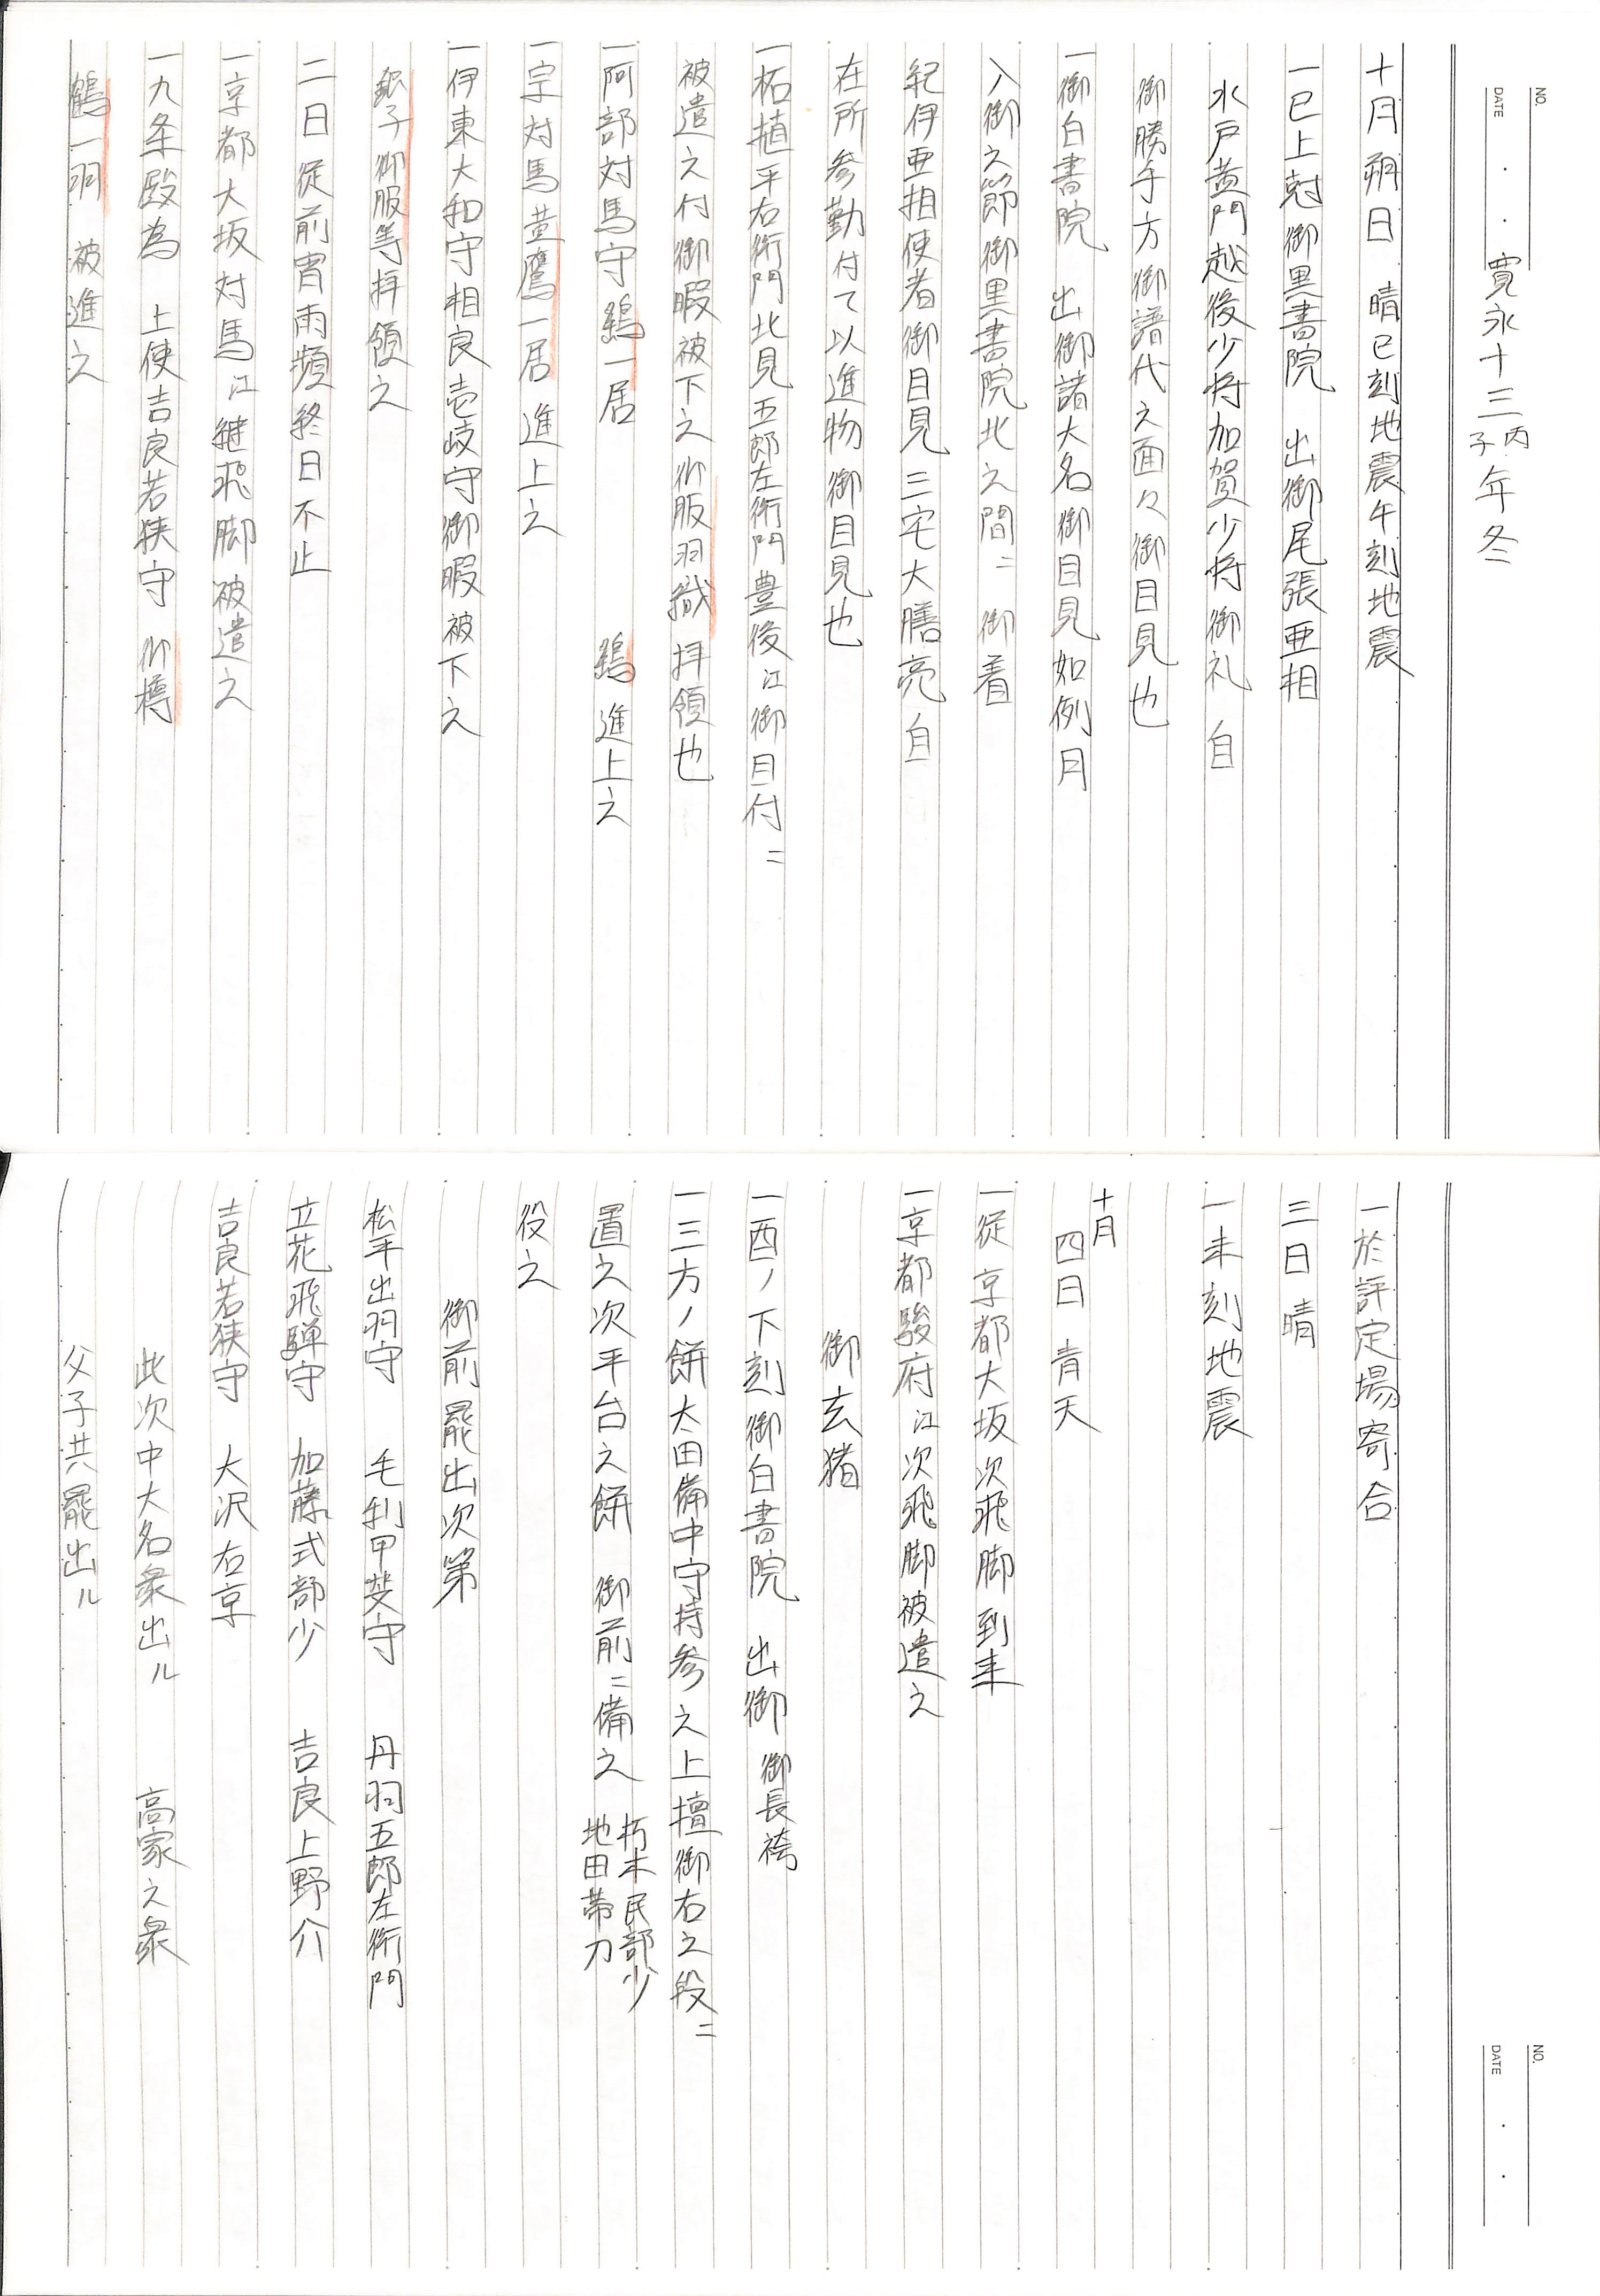 NO.
DATE
寛永十三丙子年冬
十月朔日 晴巳刻地震午刻地震
一巳上尅御黒書院 出御尾張亜相
水戸黄門越後少将加賀少将御礼 自
御勝手方御譜代之面々御目見也
一御白書院 出御諸大名御目見如例月
入御之節御黒書院北之間ニ 御着
紀伊亜相使者御目見三宅大膳亮自
在所参勤付て以進物御目見也
一柘植平右衛門北見五郎左衛門豊後江御目付ニ
被遣之付御暇被下之御服羽織拝領也
一阿部対馬守鶏一居 鶏進上之
一宗対馬黄鷹一居進上之
一伊東大和守相良壱岐守御暇被下之
銀子御服等拝領之
二日 従前宵雨頻終日不止
一京都大坂対馬江継飛脚被遣之
一九条殿為 上使吉良若狭守 御樽
鶴一羽 被進之
NO.
DATE
一於評定場寄合
三日 晴
一未刻地震
十月
四日 青天
一従京都大坂次飛脚到来
一京都駿府江次飛脚被遣之
御玄猪
一酉ノ下刻御白書院 出御 御長袴
一三方ノ餅太田備中守持参之上壇御右之段ニ
置之次平台之餅 御前ニ備之 朽木民部少
地田帯刀
役之
御前罷出次第
松平出羽守 毛利甲斐守 丹羽五郎左衛門
立花飛騨守 加藤式部少 吉良上野介
吉良若狭守 大沢右京
此次中大名衆出ル 高家之衆
父子共罷出ル